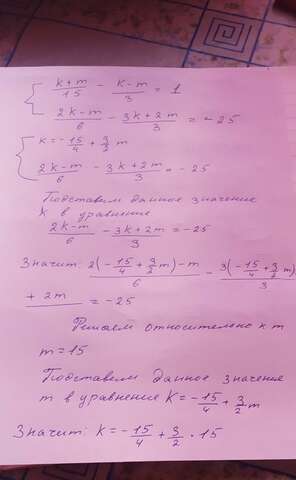 (k+m)/15 - (k-m)/3 = 1
(2k-m)/6 - (3k+2m)/3 = -25
k = -15/4 + 3/2 m
(2k-m)/6 - (3k+2m)/3 = -25
Подставим данное значение
k в уравнение
(2k-m)/6 - (3k+2m)/3 = -25
Значит: (2(-15/4 + 3/2 m) - m)/6 - (3(-15/4 + 3/2 m)
+ 2m)/3 = -25
Решаем относительно к m
m = 15
Подставим данное значения
m в уравнение K = -15/4 + 3/2 m
Значит: k = -15/4 + 3/2 · 15